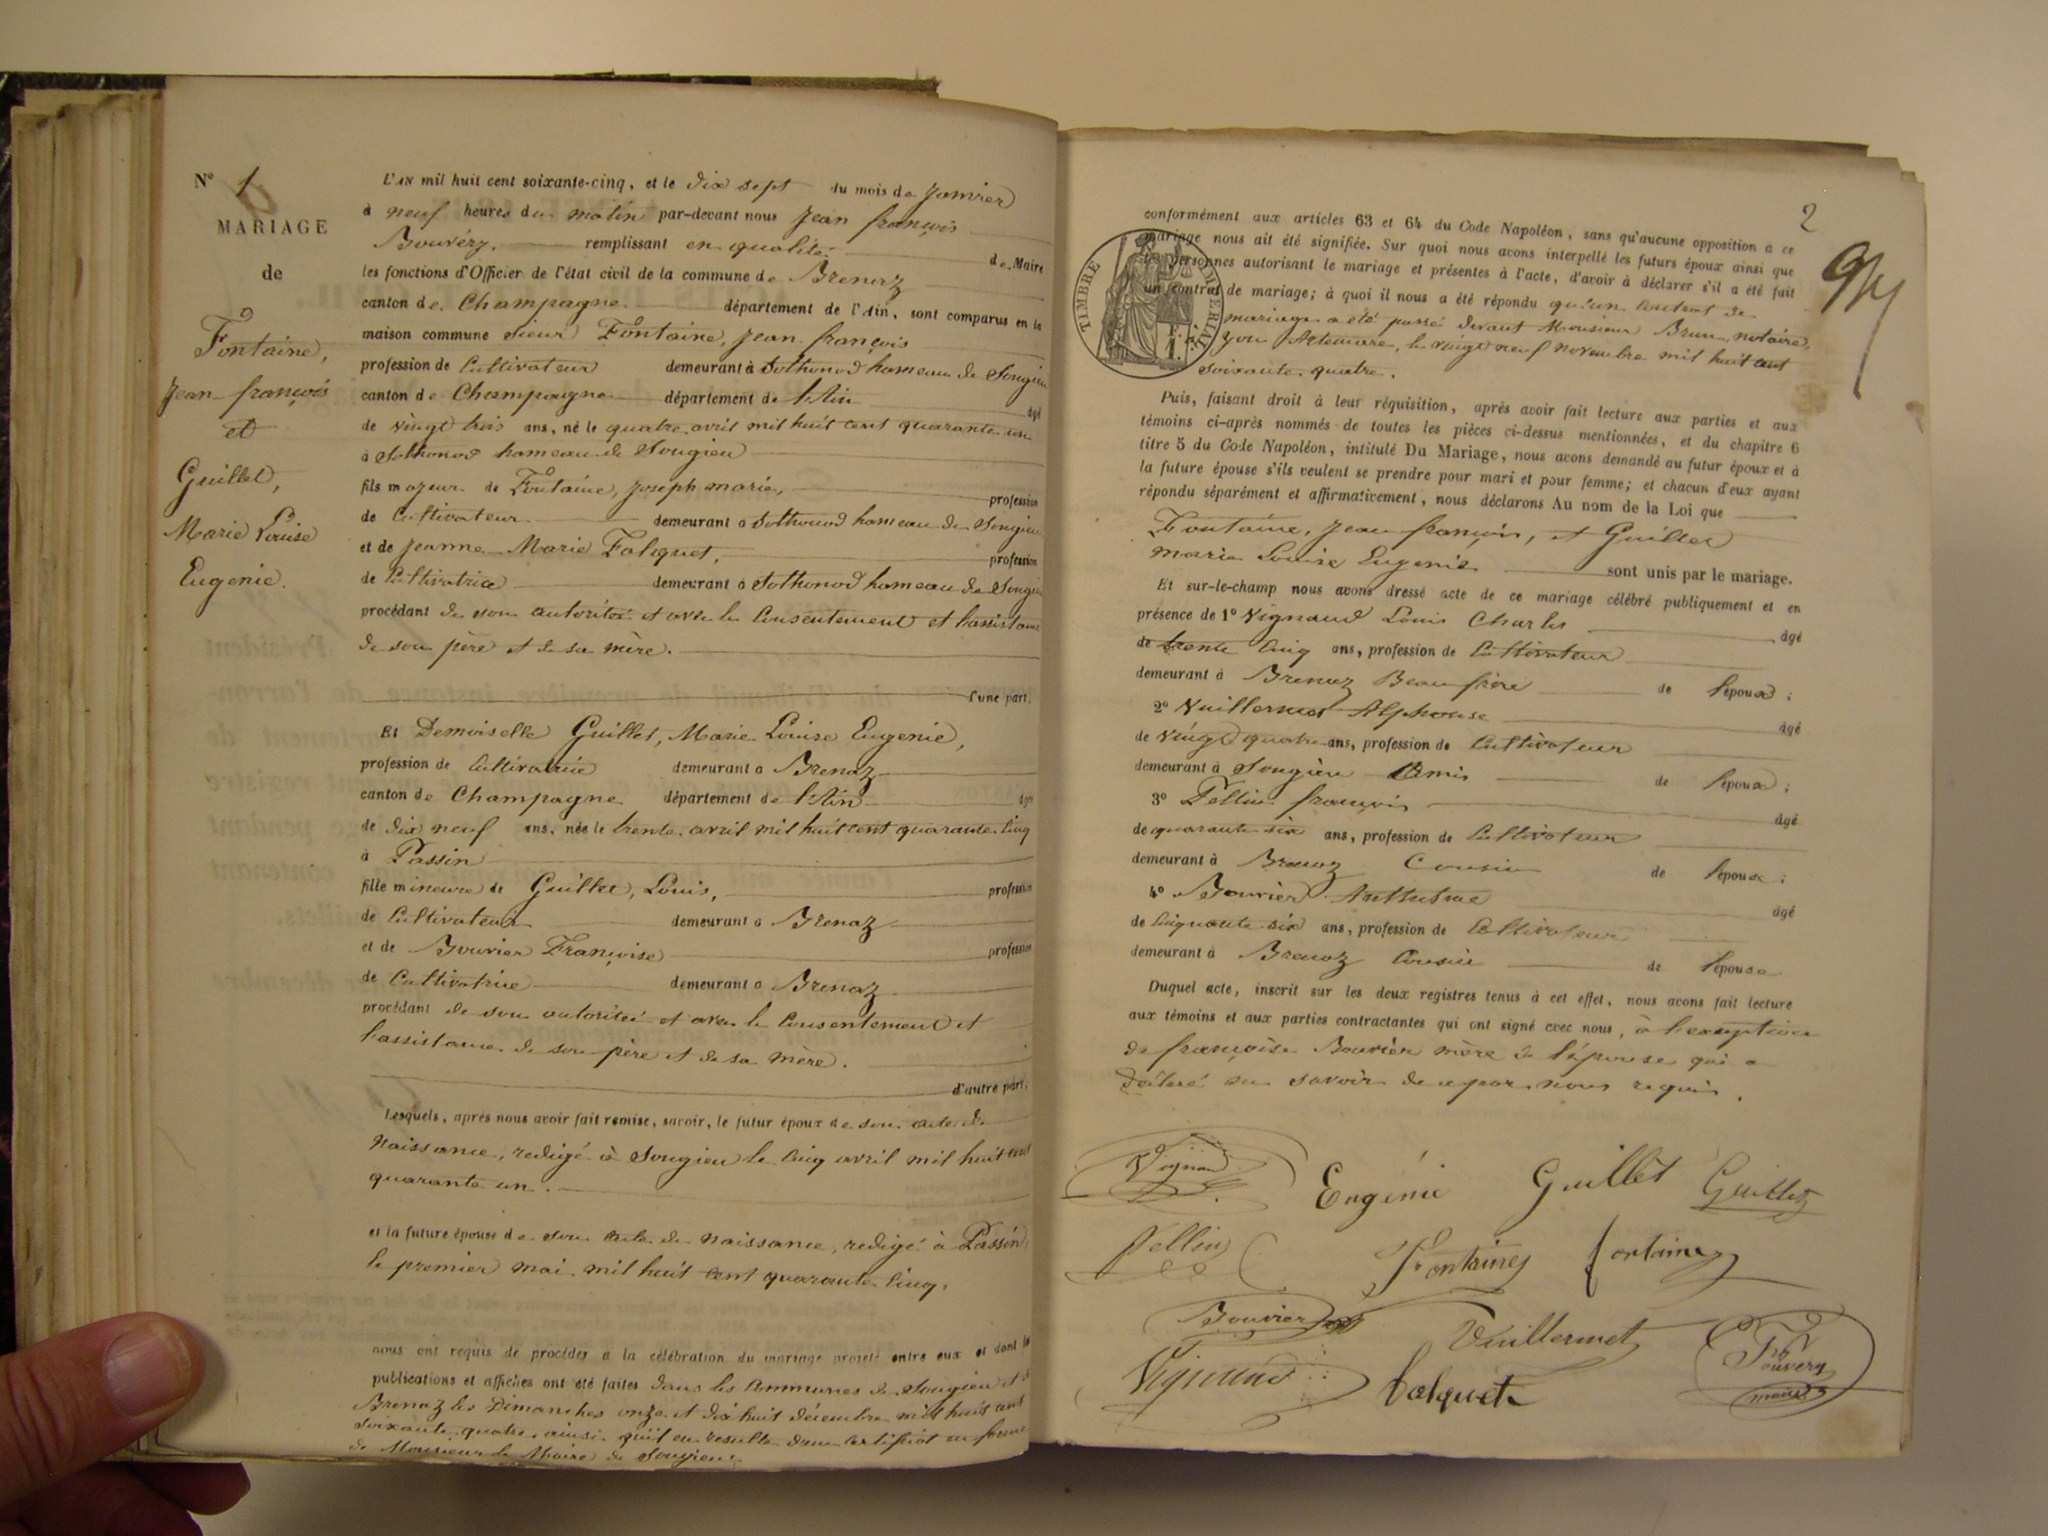 N° 1
MARIAGE
de
Fontaine,
Jean françois
et
Guillet,
Marie Louise
Eugenie.
L'AN mil huit cent soixante-cinq, et le dix sept du mois de Janvier
à neuf heures du matin par-devant nous Jean françois
Bouvéry, remplissant en qualité de Maire
les fonctions d'Officier de l'état civil de la commune de Brenaz
canton de Champagne département de l'Ain, sont comparus en la
maison commune sieur Fontaine, Jean françois
profession de Cultivateur demeurant à Sothonod hameau de Songieu
canton de Champagne département de l'Ain âgé
de vingt trois ans, né le quatre avril mil huit cent quarante un
à Sothonod hameau de Songieu
fils majeur de Fontaine, Joseph marie, profession
de Cultivateur demeurant à Sothonod hameau de Songieu
et de Jeanne Marie Falquet, profession
de Cultivatrice demeurant à Sothonod hameau de Songieu
procédant de son autorité et avec le Consentement et l'assistance
de son père et de sa mère.
d'une part.
Et Demoiselle Guillet, Marie Louise Eugenie,
profession de Cultivatrice demeurant à Brenaz
canton de Champagne département de l'Ain âgée
de dix neuf ans, née le trente avril mil huit cent quarante cinq
à Passin
fille mineure de Guillet, Louis, profession
de Cultivateur demeurant à Brenaz
et de Bouvier Françoise profession
de Cultivatrice demeurant à Brenaz
procédant de son autorité et avec le Consentement et
l'assistance de son père et de sa mère.
d'autre part;
Lesquels, après nous avoir fait remise, savoir, le futur époux de son acte de
Naissance, redigé à Songieu le cinq avril mil huit cent
quarante un.
et la future épouse de son acte de naissance, redigé à Passin
le premier mai mil huit cent quarante cinq.
nous ont requis de procéder à la célébration du mariage projeté entre eux et dont les
publications et affiches ont été faites dans les Communes de Songieu et de
Brenaz les Dimanches onze et dix huit décembre mil huit cent
soixante quatre, ainsi qu'il en resulte d'un certificat en forme
de Monsieur le Maire de Songieu.
2
TIMBRE IMPERIAL
conformément aux articles 63 et 64 du Code Napoléon, sans qu'aucune opposition a ce
mariage nous ait été signifiée. Sur quoi nous avons interpellé les futurs époux ainsi que
les personnes autorisant le mariage et présentes à l'acte, d'avoir à déclarer s'il a été fait
un contrat de mariage; à quoi il nous a été répondu qu'un contrat de
mariage a été passé devant Monsieur Brun, notaire,
Artemare, le vingt neuf novembre mil huit cent
soixante quatre.
Puis, faisant droit à leur réquisition, après avoir fait lecture aux parties et aux
témoins ci-après nommés de toutes les pièces ci-dessus mentionnées, et du chapitre 6
titre 5 du Code Napoléon, intitulé Du Mariage, nous avons demandé au futur époux et à
la future épouse s'ils veulent se prendre pour mari et pour femme; et chacun d'eux ayant
répondu séparément et affirmativement, nous déclarons Au nom de la Loi que
Fontaine, Jean françois, et Guillet
marie Louise Eugenie sont unis par le mariage.
Et sur-le-champ nous avons dressé acte de ce mariage célébré publiquement et en
présence de 1° Vignaud Louis Charles âgé
de trente cinq ans, profession de Cultivateur
demeurant à Brenaz Beau frère de l'époux;
2° Vuillermet Alphonse âgé
de vingt quatre ans, profession de Cultivateur
demeurant à Songieu Amis de l'époux;
3° Pellin françois âgé
de quarante six ans, profession de Cultivateur
demeurant à Brenaz Cousin de l'épouse;
4° Bouvier Anthelme âgé
de cinquante six ans, profession de Cultivateur
demeurant à Brenaz Cousin de l'épouse
Duquel acte, inscrit sur les deux registres tenus à cet effet, nous avons fait lecture
aux témoins et aux parties contractantes qui ont signé avec nous, à l'exeption
de françoise Bouvier mère de l'épouse qui a
déclaré ne savoir de ce par nous requis.
Vignaud Eugénie Guillet Guillet
Pellin Fontaine fontaine
Bouvier Vuillermet
Vignaud falquet Bouvery
maire